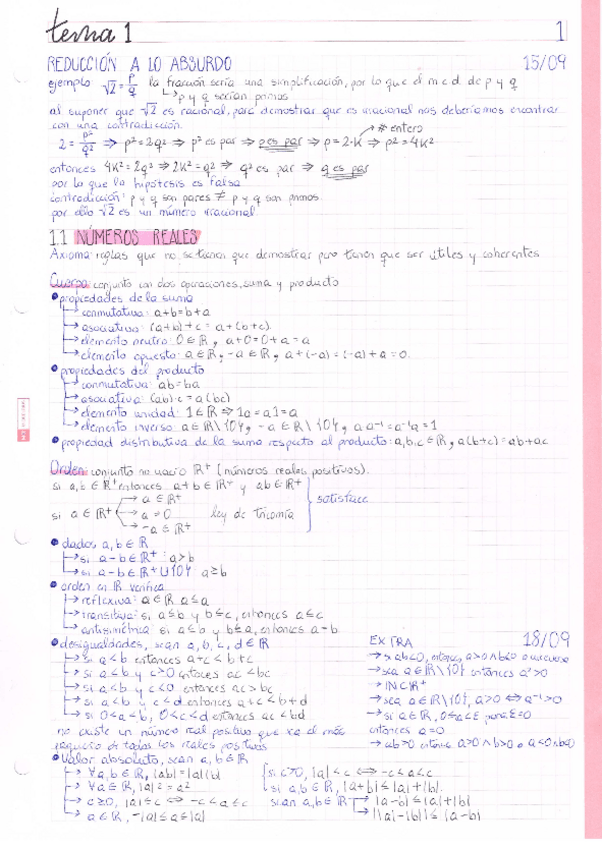 tema 1
1
REDUCCIÓN A LO ABSURDO 15/09
ejemplo √2 = p/q la fracción sería una simplificación, por lo que el m.c.d. de p y q
↳ p y q serían primos
al suponer que √2 es racional, para demostrar que es irracional nos deberíamos encontrar
con una contradicción
2 = p²/q² ⇒ p² = 2q² ⇒ p² es par ⇒ p es par ⇒ p = 2·K ⇒ p² = 4K²
# entero
entonces 4K² = 2q² ⇒ 2K² = q² ⇒ q² es par ⇒ q es par
por lo que la hipótesis es falsa
contradicción: p y q son pares ≠ p y q son primos
por ello √2 es un número irracional
1.1 NÚMEROS REALES
Axioma: reglas que no se tienen que demostrar pero tienen que ser útiles y coherentes
Cuerpo: conjunto con dos operaciones, suma y producto
• propiedades de la suma
→ conmutativa: a+b=b+a
→ asociativa: (a+b)+c = a+(b+c)
→ elemento neutro: 0∈ℝ, a+0=0+a=a
→ elemento opuesto: a∈ℝ, -a∈ℝ, a+(-a)=(-a)+a=0
• propiedades del producto
→ conmutativa: ab=ba
→ asociativa: (ab)·c = a(bc)
→ elemento unidad: 1∈ℝ ⇒ 1a=a1=a
→ elemento inverso: a∈ℝ\{0}, -a∈ℝ\{0}, a·a⁻¹=a⁻¹a=1
• propiedad distributiva de la suma respecto al producto: a,b,c∈ℝ, a(b+c)=ab+ac
Orden: conjunto no vacío ℝ⁺ (números reales positivos).
si a,b∈ℝ⁺ entonces a+b∈ℝ⁺ y ab∈ℝ⁺
→ a∈ℝ⁺
si a∈ℝ⁺ → a=0 ley de tricomía
→ -a∈ℝ⁺
satisface
• dados a,b∈ℝ
→ si a-b∈ℝ⁺: a>b
→ si a-b∈ℝ⁺∪{0} a≥b
• orden en ℝ verifica
→ reflexiva: a∈ℝ a≤a
→ transitiva: si a≤b y b≤c, entonces a≤c
→ antisimétrica: si a≤b y b≤a, entonces a=b
• desigualdades, sean a,b,c,d∈ℝ
→ si a<b entonces a+c<b+c
→ si a<b y c>0 entonces ac<bc
→ si a<b y c<0 entonces ac>bc
→ si a<b y c<d entonces a+c<b+d
→ si 0<a<b, 0<c<d entonces ac<bd
no existe un número real positivo que sea el más
pequeño de todos los reales positivos
• Valor absoluto, sean a,b∈ℝ
→ ∀a,b∈ℝ, |ab|=|a||b|
→ ∀a∈ℝ, |a|²=a²
→ c≥0, |a|≤c ⇔ -c≤a≤c
→ a∈ℝ, -|a|≤a≤|a|
si c>0, |a|<c ⇔ -c<a<c
si a,b∈ℝ, |a+b|≤|a|+|b|
sean a,b∈ℝ → |a-b|≤|a|+|b|
→ ||a|-|b||≤|a-b|
EXTRA 18/09
→ si ab<0, entonces, a>0∧b<0 o
→ sea a∈ℝ\{0} entonces a²>0
→ ℕ⊂ℝ⁺
→ sea a∈ℝ\{0}, a>0 ⇔ a⁻¹>0
→ si a∈ℝ, 0≤a≤ε para ε=0
entonces a=0
→ ab>0 entonces a>0∧b>0 o a<0∧b<0